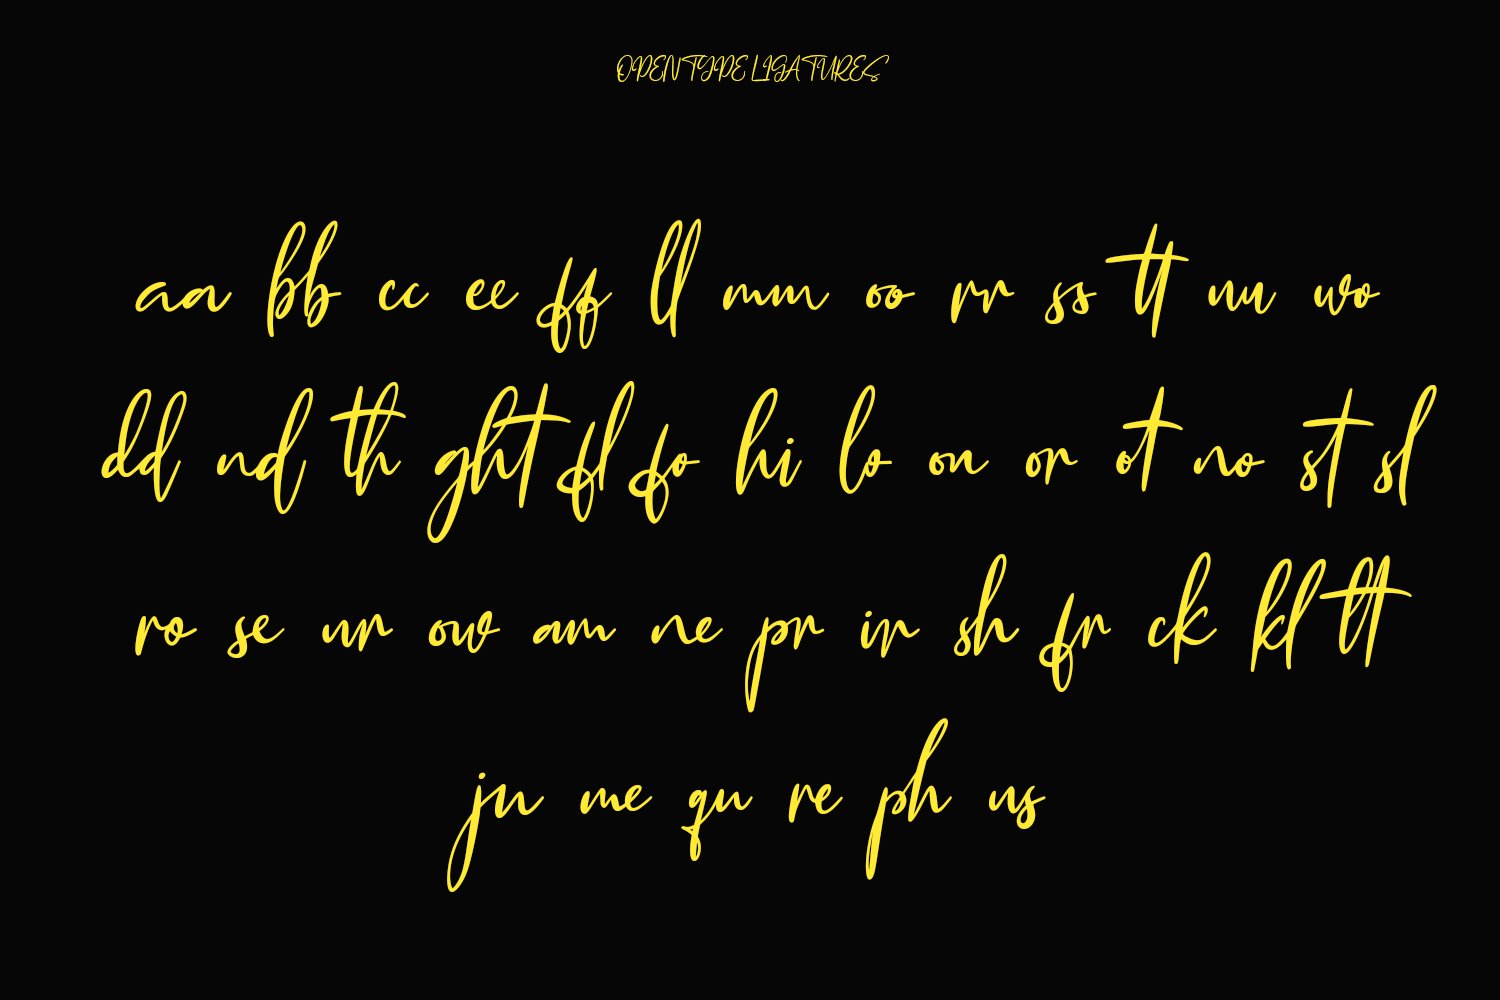 OPENTYPE LIGATURES
aa bb cc ee ff ll mm oo rr ss tt nu wo
dd nd th ght fl fo hi lo on or ot no st sl
ro se ur ow am ne pr ir sh fr ck kl lt
ju me qu re ph us